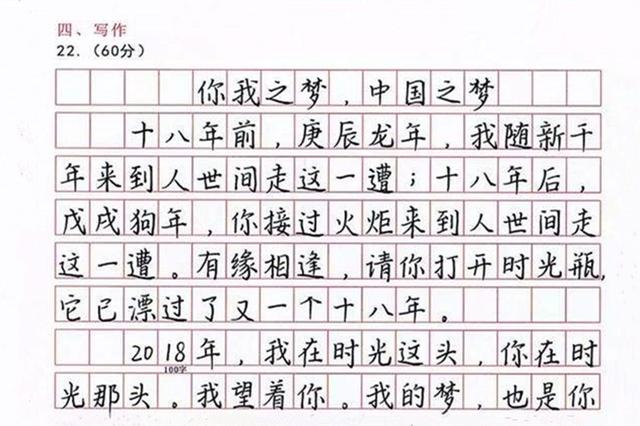 四、写作
22.（60分）
你我之梦，中国之梦
十八年前，庚辰龙年，我随新千
年来到人世间走这一遭；十八年后，
戊戌狗年，你接过火炬来到人世间走
这一遭。有缘相逢，请你打开时光瓶，
它已漂过了又一个十八年。
2018年，我在时光这头，你在时
100字
光那头。我望着你。我的梦，也是你